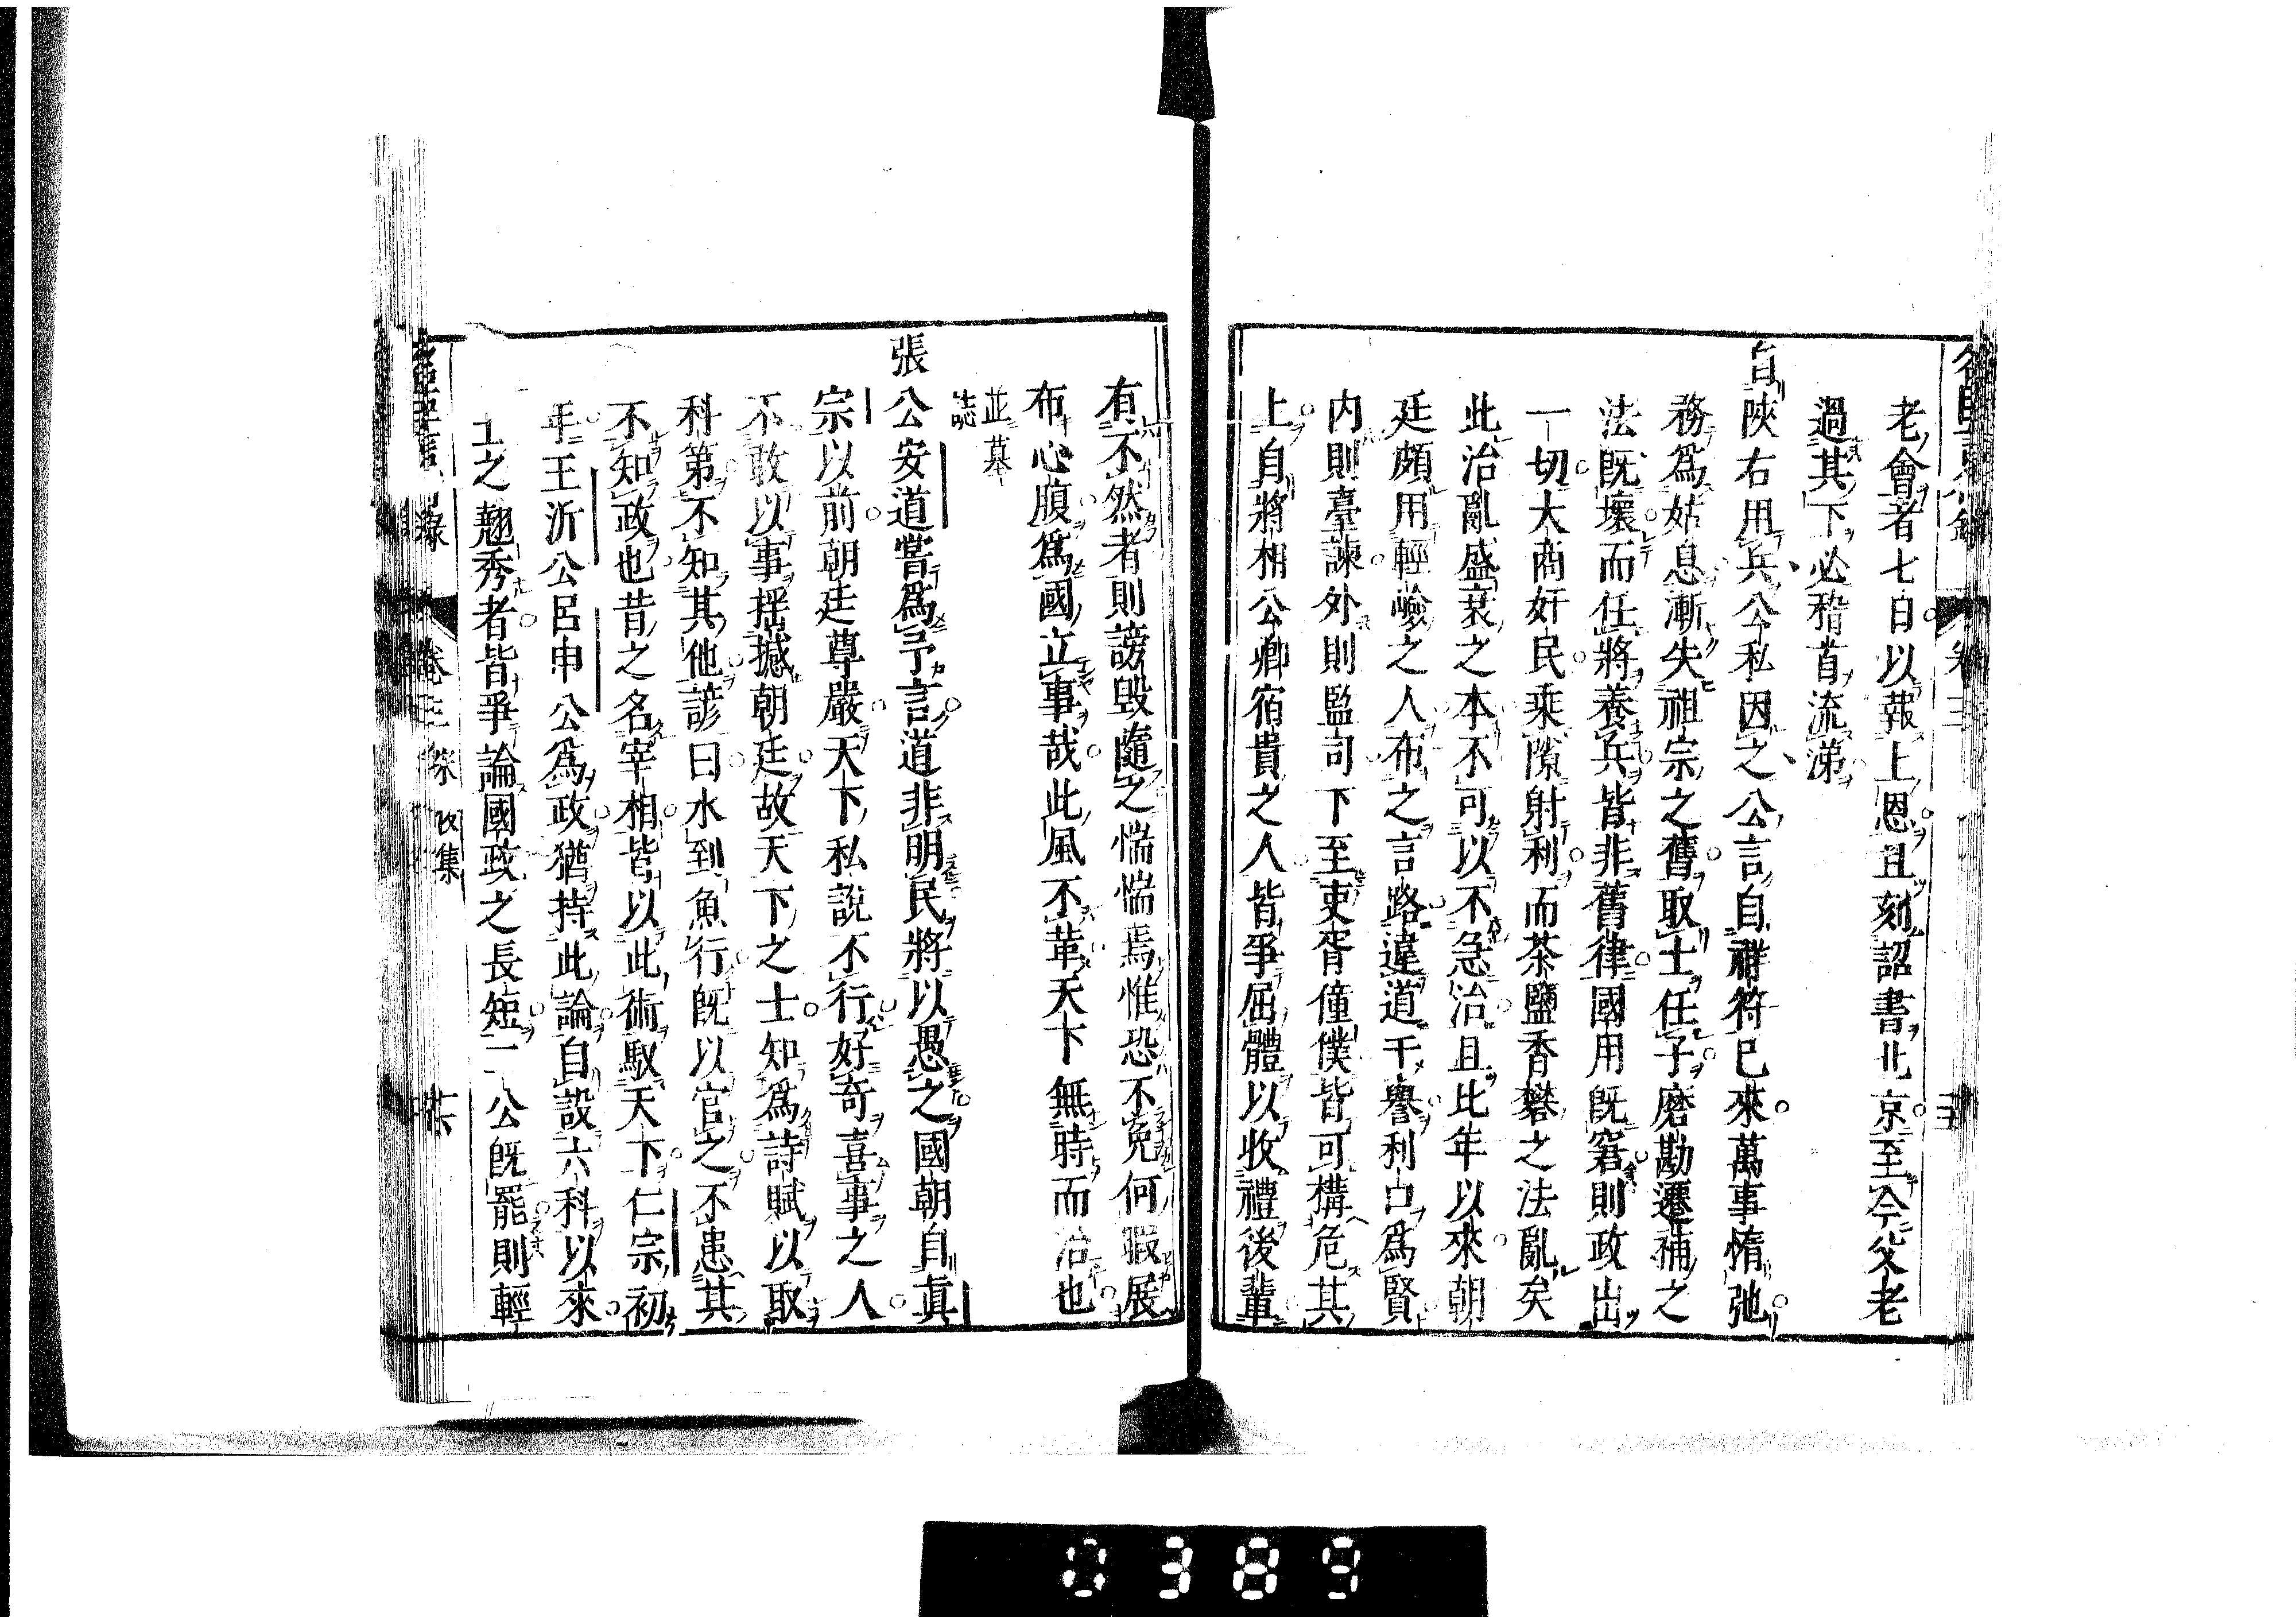 老會者七日以報上恩且刻詔書北京至今父老
過其下必稽首流涕
自陝右用兵公私因之公言自祥符已來萬事惰弛
務爲姑息漸失祖宗之舊取士任子磨勘遷補之
法旣壞而任將養兵皆非舊律國用旣窘則政出
一切大商奸民乘隙射利而茶鹽香礬之法亂矣
此治亂盛衰之本不可以不急治且比年以來朝
廷頗用輕嶮之人布之言路違道干譽利口爲賢
內則臺諫外則監司下至吏胥僮僕皆可構危其
上自將相公卿宿貴之人皆爭屈體以收禮後輩
有不然者則謗毀隨之惴惴焉惟恐不免何暇展
布心腹爲國立事哉此風不革天下無時而治也
並墓誌
張公安道嘗爲予言道非明民將以愚之國朝自眞
宗以前朝廷尊嚴天下私說不行好奇喜事之人
不敢以事揺撼朝廷故天下之士知爲詩賦以取
科第不知其他諺曰水到魚行旣以官之不患其
不知政也昔之名宰相皆以此術馭天下仁宗初
年王沂公呂申公爲政猶持此論自設六科以來
士之翹秀者皆爭論國政之長短二公旣罷則輕
卷三 後集
0389